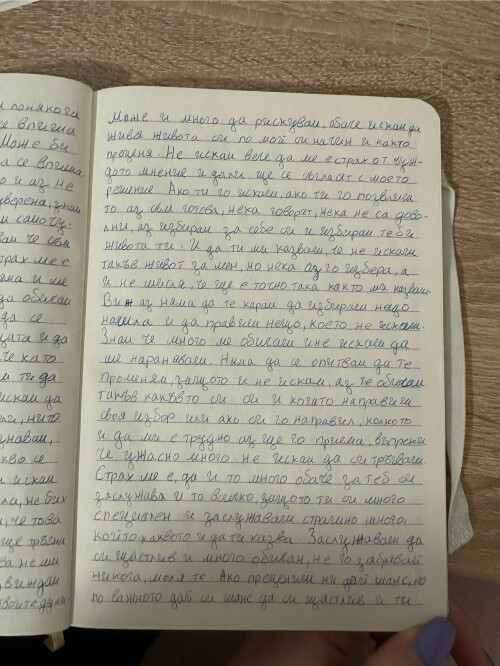 и понякога
се впуска
Може би
да се впусна.
и аз не
уверена, знам
и само чу-
че съм
страх ме е
и ме
да обичам
да се
и да
че като
ти да
искам да
нито
кво се
и искам
не бях
че това
ще тръгна
ва не ми
виждам
твоите думи
Може и много да рискувам, обаче искам да
живея живота си по мой си начин и както
преценя. Не искам вече да ме е страх от чуж-
дото мнение и дали ще се съгласят с моето
решение. Ако ти го искаш, ако ти го позволиш
то аз съм готова, нека говорят, нека не са дово-
лни, аз избирам за себе си и избирам теб в
живота ти. И да ти ми казваш, че не искаш
такъв живот за мен, но нека аз го избера, а
и не мисля, че ще е точно така както ми казваш.
Виж аз няма да те карам да избираш нещо
насила и да правиш нещо, което не искаш.
Знам че много ме обичаш и не искаш да
ме нараняваш. Няма да се опитвам да те
променям, защото и не искам, аз те обичам
такъв какъвто си си и когато направиш
своя избор или ако си го направил, колкото
и да ми е трудно аз ще го приема, въпреки
че ужасно много не искам да си тръгваш.
Страх ме е, да и то много обаче за теб си
заслужава и то всичко, защото ти си много
специален и заслужаваш страшно много,
който каквото и да ти казва. Заслужаваш да
си щастлив и много обичан, не го забравяй
никога, моля те. Ако прецениш ни дай шанс, но
по важното дай си шанс да си щастлив и ти